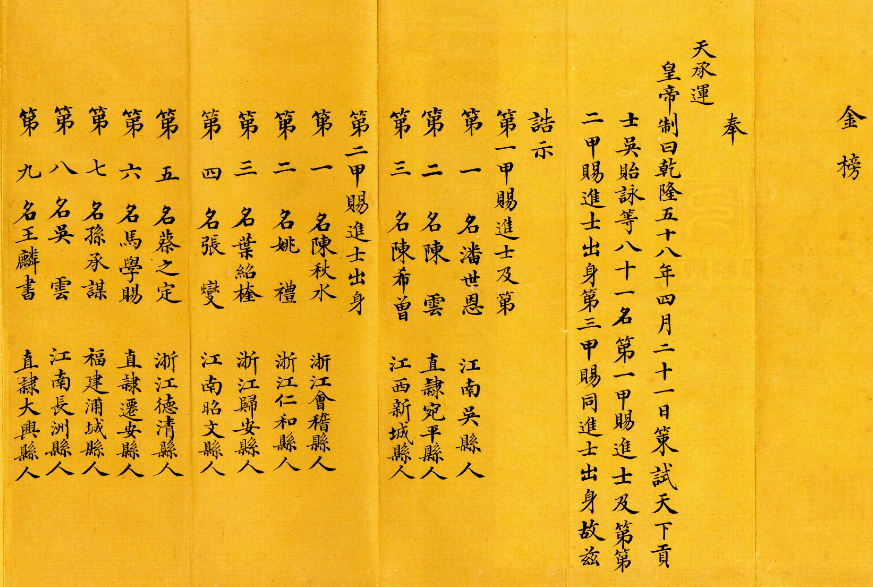 金榜
奉
天承運
皇帝制曰乾隆五十八年四月二十一日策試天下貢
士吳貽詠等八十一名第一甲賜進士及第第
二甲賜進士出身第三甲賜同進士出身故兹
誥示
第一甲賜進士及第
第一名潘世恩 江南吳縣人
第二名陳雲 直隸宛平縣人
第三名陳希曾 江西新城縣人
第二甲賜進士出身
第一名陳秋水 浙江會稽縣人
第二名姚禮 浙江仁和縣人
第三名葉紹楏 浙江歸安縣人
第四名張燮 江南昭文縣人
第五名蔡之定 浙江德清縣人
第六名馬學賜 直隸遷安縣人
第七名孫承謀 福建浦城縣人
第八名吳雲 江南長洲縣人
第九名王麟書 直隸大興縣人